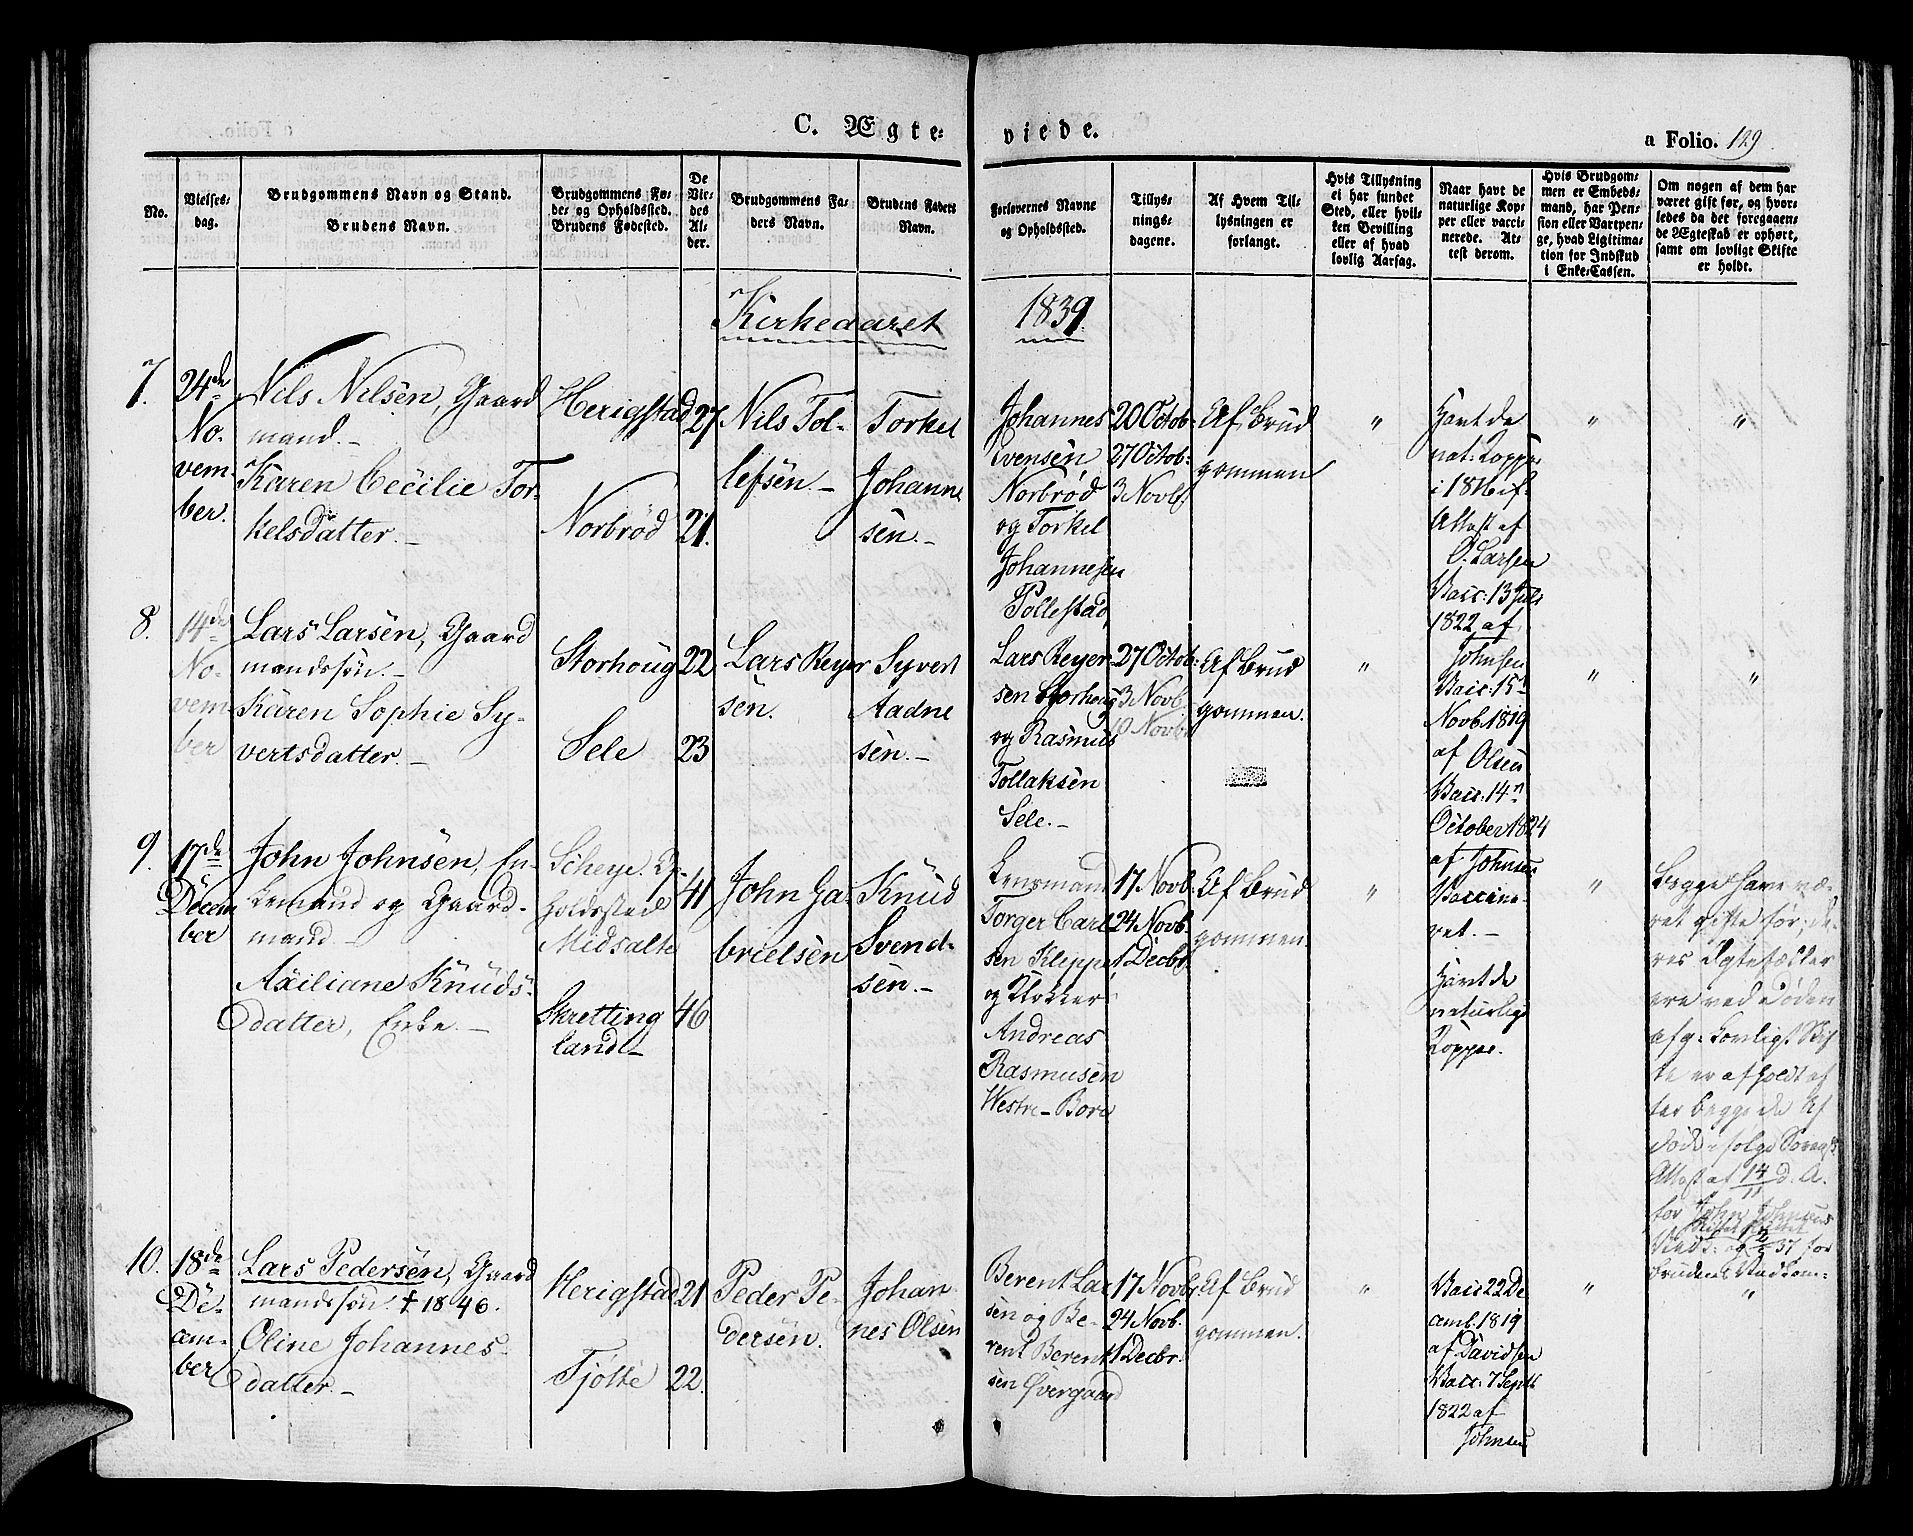 C. Ægte-
viede.
a Folio. 129
No.
Vielses-
dag.
Brudgommens Navn og Stand.
Brudens Navn.
Brudgommens Fø-
de- og Opholdssted.
Brudens Fødested.
De
Vie-
des
Al-
der.
Brudgommens Fa-
ders Navn.
Brudens Faders
Navn.
Forlovernes Navne
og Opholdssted.
Tillys-
nings-
dagene.
Af Hvem Til-
lysningen er
forlangt.
Hvis Tillysning
ei har fundet
Sted, eller hvil-
ken Bevilling
eller af hvad
lovlig Aarsag.
Naar havt de
naturlige Kop-
per eller vacci-
nerede. At-
test derom.
Hvis Brudgom-
men er Embeds-
mand, har Pen-
sion eller Vartpen-
ge, hvad Ligitima-
tion for Indskud
i Enke-Cassen.
Om nogen af dem har
været gift før, og hvor-
ledes da det foregaaen-
de Ægteskab er ophørt,
samt om lovligt Skifte
er holdt.
Kirkeaaret
1839.
7.
24de
No-
vem-
ber.
Nils Nilsen, Gaard
mand.-
Karen Cecilie Tor-
kelsdatter.-
Herigstad
Norbrød
27
21.
Nils Tol-
lefsen.-
Torkel
Johanne
sen.-
Johannes
Evensen
Norbrød
og Torkel
Johannesen
Tollestad,
20 Octob:
27 Octob:
3 Novb.
Af Brud
gommen
"
Havt de
nat: Kopper
Attest af
O. Larsen
Vacc: 13 Juli
1822 af
Johnsen
"
"
8.
14de
No-
vem-
ber
Lars Larsen, Gaard
mandssøn.-
Karen Sophie Sy-
vertsdatter.-
Storhoug
Sele
22
23
Lars Reyer
sen.
Syvert
Aadne
sen.-
Lars Reyer-
sen Storhoug
og Rasmus
Tollaksen
Sele.-
27 Octob:
3 Novb.
10 Novb.
Af Brud
gommen.
"
Vacc: 15
Novb. 1819
af Olsen
Vacc: 14
October 1824
af Johnsen
"
"
9.
17de
Decem
ber
John Johnsen, En-
kemand og Gaard-
mand.-
Axiliane Knuds-
datter, Enke.-
Scheye. Op-
holdssted
Midsalte
Skretting
land.-
41
46
John Ga-
brielsen
Knud
Svend-
sen.-
Lensmand
Torger Carl
sen Kleppe
og Klokker
Andreas
Rasmusen
Westre-Bore
17 Novb.
24 Novb.
1 Decbr.
Af Brud
gommen.
"
Vaccine-
ret.-
Havt de
naturlige
Kopper.
"
Begge have væ-
ret gifte før; de-
res Ægtefæller
ere ved Døden
afg: Lovligt Skif-
te er afholdt ef
ter begge de Af
døde
Attest af 14/11 d. A.
for John Johnsens
for
Brudens Vedkom-
10.
18de
De-
cem-
ber
Lars Pedersen, Gaard
mandssøn. † 1846.
Oline Johannes-
datter.-
Herigstad
Tjøtte
21
22.
Peder Pe-
dersen.
Johan
nes Olsen
Berent Lar
sen og Be-
rent Berent
sen Øvergaard
17 Novb.
24 Novb.
1 Decbr.
Af Brud
gommen.
"
Vacc 22 De
cemb. 1819
af Davidsen
Vacc: 7 Septb
1822 af
Johnsen
"
"